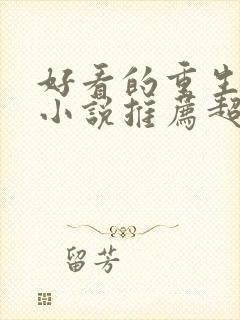 好看的重生
小说推荐超
留芳